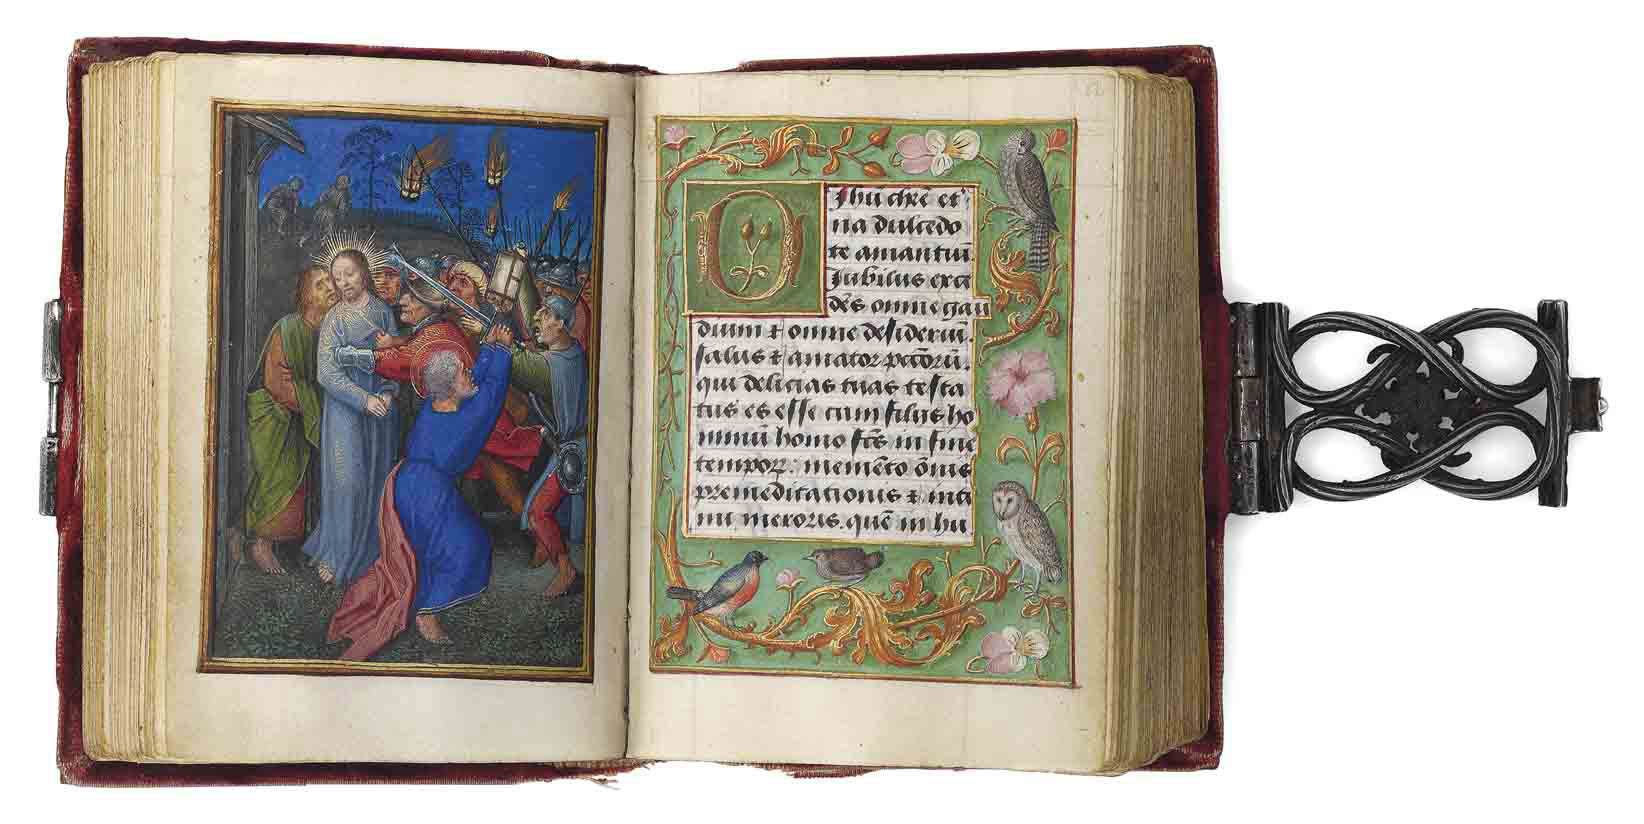 O Ihu chrē et
na dulcedo
te amantiū.
Iubilus exce
dēs omne gau
dium ⁊ omne desideriū.
salus ⁊ amator pctōrū.
qui delicias tuas testa
tus es esse cum filiis ho
minū homo fcūs in fine
temporꝝ. memēto ōnis
premeditationis ⁊ inti
mi meroris. quē in hu